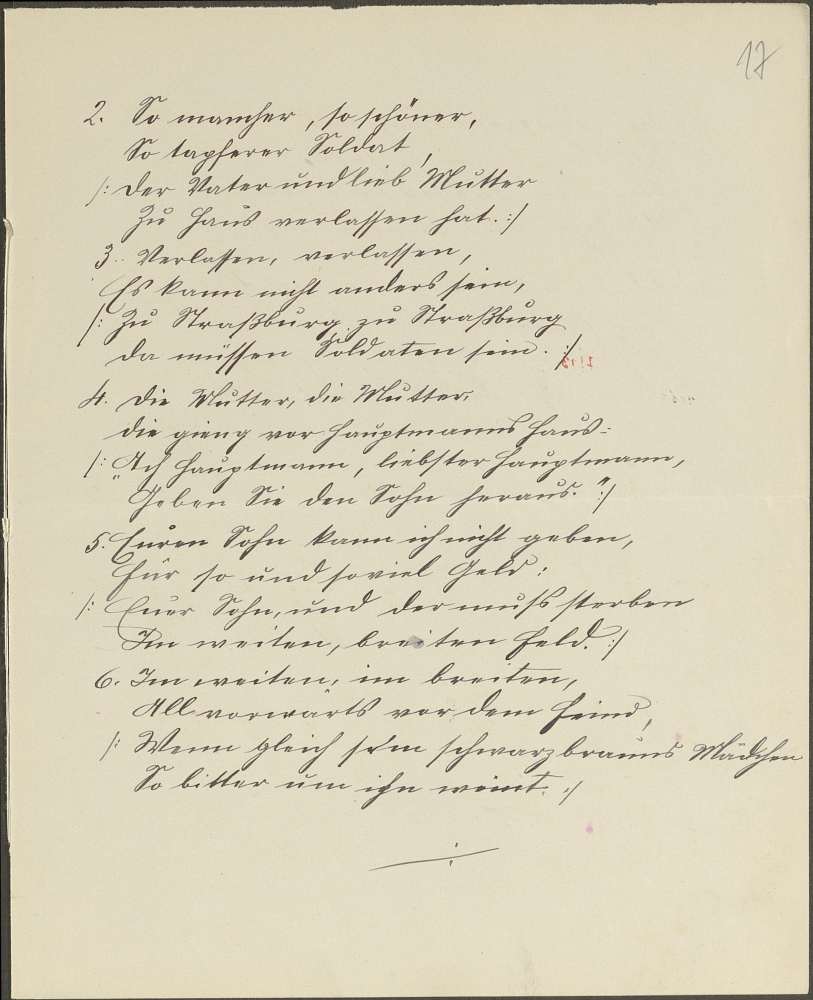 17
2. So mancher, so schöner,
So tapferer Soldat,
/: Der Vater und lieb Mutter
Zu Haus verlassen hat. :/
3. Verlassen, verlassen,
Es kann nicht anders sein,
/: Zu Straßburg, zu Straßburg
Da müssen Soldaten sein. :/
4. Die Mutter, die Mutter,
die gieng vor Hauptmanns Haus:
/: "Ach Hauptmann, liebster Hauptmann,
Geben Sie den Sohn heraus." :/
5. Euren Sohn kann ich nicht geben,
Für so und soviel Geld:
/: Euer Sohn, und der muss sterben
Im weiten, breiten Feld. :/
6. Im weiten, im breiten,
All vorwärts vor dem Feind,
/: Wenn gleich sein schwarzbrauns Mädchen
So bitter um ihn weint. :/